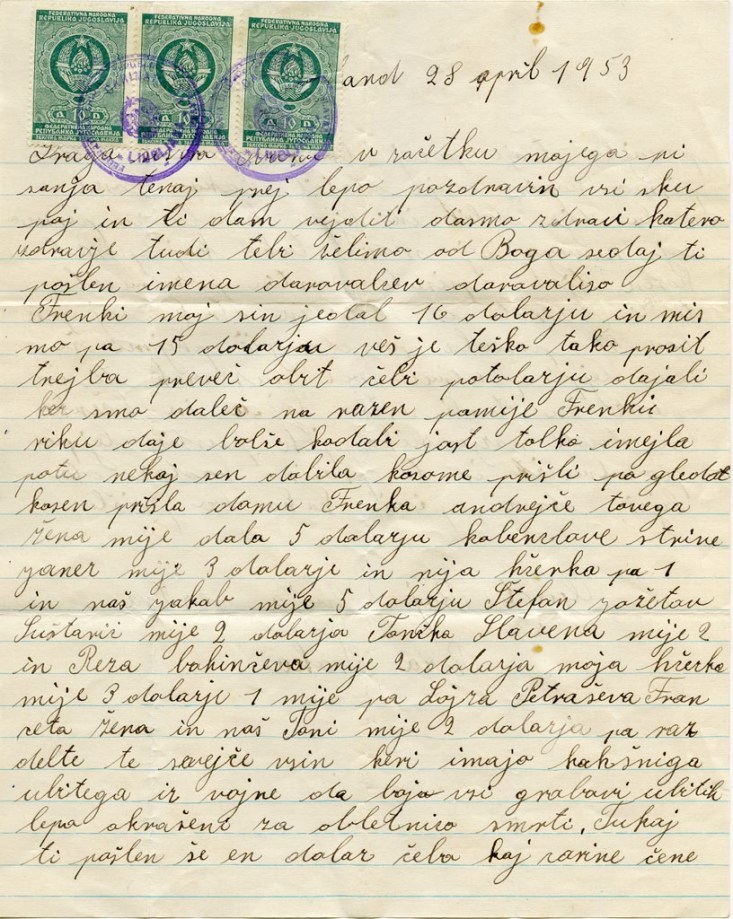 FEDERATIVNA NARODNA REPUBLIKA JUGOSLAVIJA
D 10 D
ФЕДЕРАТИВНА НАРОДНА РЕПУБЛИКА ЈУГОСЛАВИЈА
FEDERATIVNA NARODNA REPUBLIKA JUGOSLAVIJA
A 10 D
ФЕДЕРАТИВНА НАРОДНА РЕПУБЛИКА ЈУГОСЛАВИЈА
FEDERATIVNA NARODNA REPUBLIKA JUGOSLAVIJA
D 10 D
ФЕДЕРАТИВНА НАРОДНА РЕПУБЛИКА ЈУГОСЛАВИЈА
land 28 april 1953
Draga v začetku mojega pi
sanja tenaj prej lepo pozdravin vsi sku
paj in ti dam vejdit dasmo zdravi katero
zdravje tudi tebi želimo od Boga sedaj ti
pošlen imena darovalcev darovaliso
Frenki moj sin jedal 16 dolarju in mis
mo pa 15 dolarju veš je teško tako prosit
trejba preveč obit čebi potolarju dajali
ker smo daleč na razen pamije Frenkiu
riku daje bolše kodabi jast tolko imejla
potu nekaj sen dabila kosome prišli pa gledat
kosen pršla damu Frenka andrejče tovega
žena mije dala 5 dolarju kobenslove strine
yaner mije 3 dolarje in nija hčerka pa 1
in naš yakab mije 5 dolarju Štefan yožetov
Šuštarič mije 2 dolarja Tončka Slavena mije 2
in Reza bohinčeva mije 2 dolarja moja hčerka
mije 3 dolarje 1 mije pa Lojza Petraševa Fran
ceta žena in naš Toni mije 2 dolarja pa raz
delte te sevejče vsin keri imajo kakšniga
ubitega iz vojne da bojo vsi grobovi ubitih
lepo okrašeni za obletnico smrti. Tukaj
ti pošlen še en dolar čebo kaj carine čene